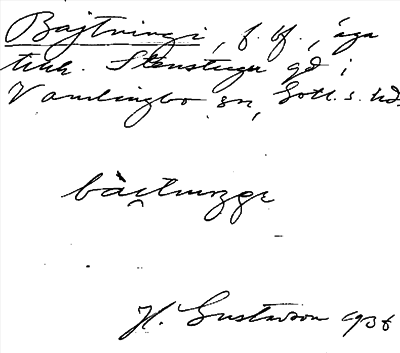 Bajtningi, f. bf., äga
tillh. Stenstugu gd i
Vamlingbo sn, Gotl. s. hd.
bàitningi
H. Gustavson 1936